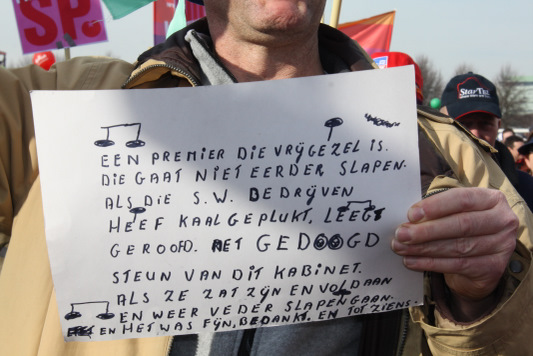 SP.
StarTel
EEN PREMIER DIE VRYGEZEL IS.
DIE GAAT NIET EERDER SLAPEN.
ALS DIE S.W. BEDRYVEN
HEEF KAALGEPLUKT. LEEG
GEROOFD. MET GEDOOGD
STEUN VAN DIT KABINET.
ALS ZE ZAT ZYN EN VOLDAAN
EN WEER VEDER SLAPEN GAAN.
EN HET WAS FYN, BEDANKT. EN TOT ZIENS.